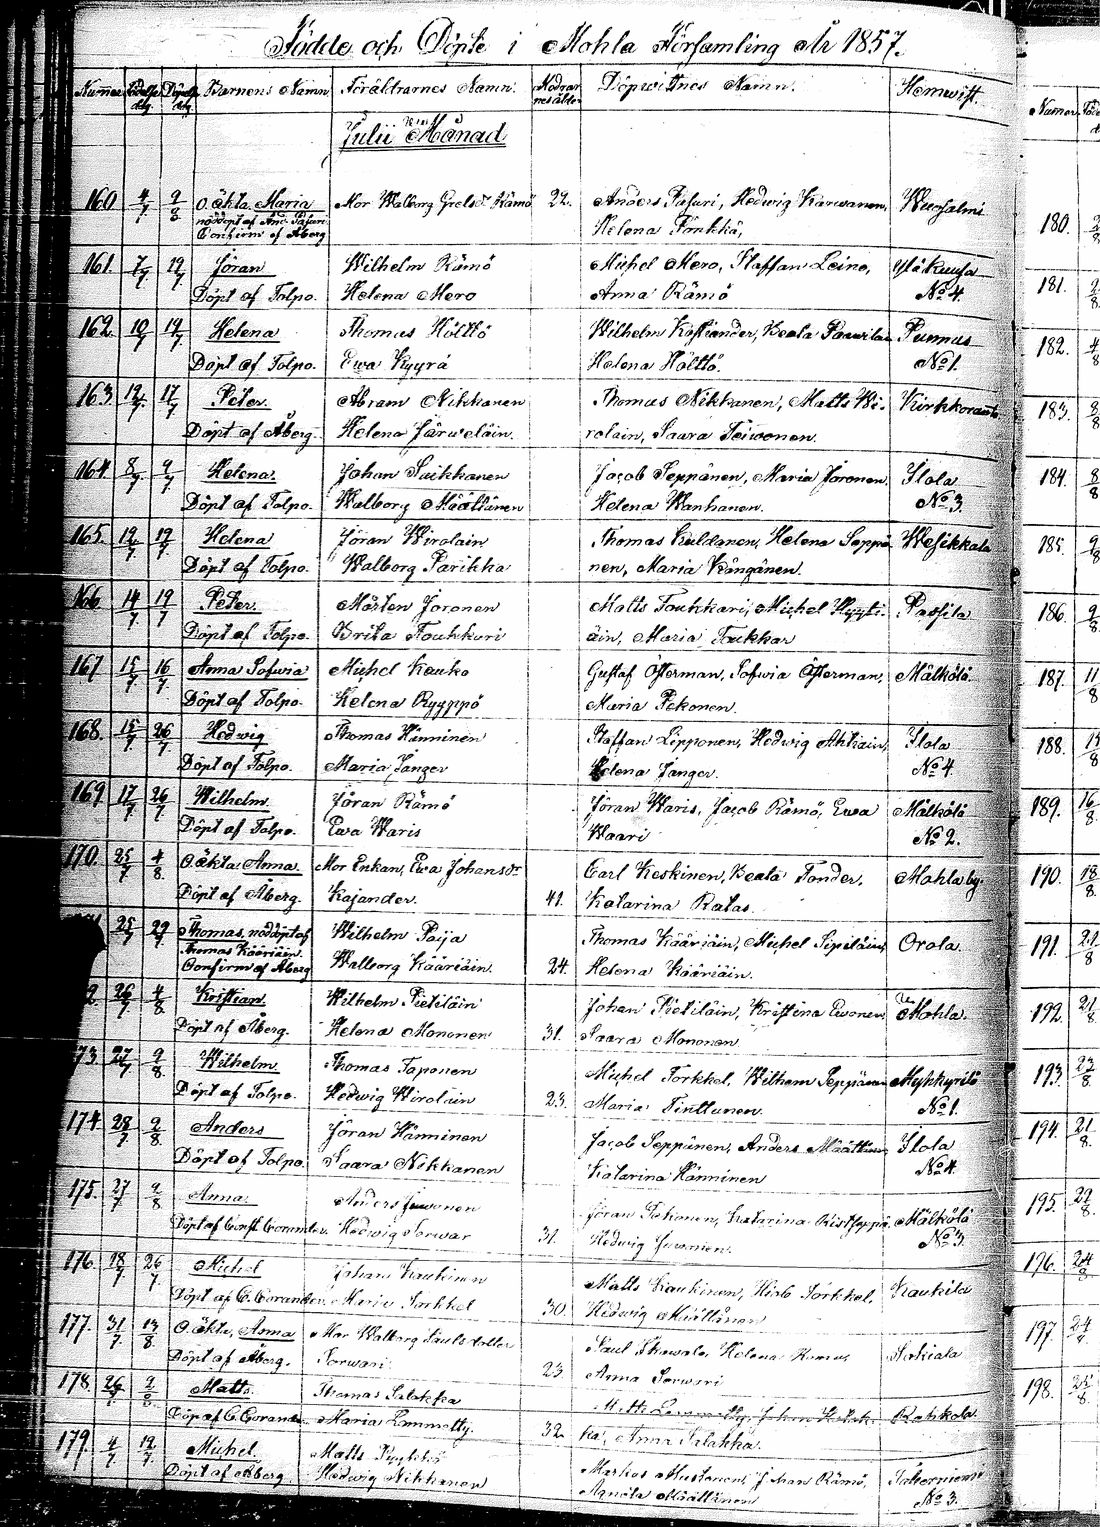 Födde och Döpte i Mohla Församling År 1857.
Numer Födelse dag Döpelse dag Barnens Namn Föräldrarnes Namn. Modrar nes ålder Döpwittnes Namn. Hemwist.
Julii Månad
160 4/7 9/8 O. äkta. Maria Mor Walborg Rämö 22. Anders Pafuri, Hedwig Karwanen, Wuosalmi
nöddöpt af And. Pafuri
Confirm. af Åberg Helena Fönkkä,
161. 7/7 19/7 Jöran Wilhelm Rämö Michel Mero, Staffan Leino,
Döpt af Tolpo. Helena Mero Anna Rämö No 4.
162. 10/7 19/7 Helena Thomas Hölttö Wilhelm Beata Punnus
Döpt af Tolpo. Ewa Kyyrä Helena Hölttö. No 1.
163 12/7 17/7 Peter. Abram Nikkanen Thomas Nikkanen, Matts Wi-
Döpt af Åberg. Helena Järweläin. rolain, Saara Toiwonen.
164. 8/7 9/7 Helena. Johan Suikkanen Jacob Seppänen, Maria Joronen, Ilola
Döpt af Tolpo. Walborg Määttänen Helena Wanhanen. No 3.
165. 12/7 19/7 Helena Jöran Wirolain Thomas Kuldanen, Helena Seppä- Wesikkala
Döpt af Tolpo. Walborg Parikka nen, Maria Kängänen.
166. 14/7 19/7 Peter. Mårten Joronen Matts Touhkari, Michel Hyyti- Passila
Döpt af Tolpo. Brita Touhkuri äin, Maria Tuukkar
167 15/7 16/7 Anna Sofwia Michel Kauko Gustaf Österman, Sofwia Österman, Mälkölä
Döpt af Tolpo. Helena Ryyppö Maria Pekonen.
168. 15/7 26/7 Hedwig Thomas Hänninen Staffan Lipponen, Hedwig Ahtiain, Ilola
Döpt af Tolpo. Maria Janger Helena Janger. No 4.
169 17/7 26/7 Wilhelm. Jöran Rämö Jöran Waris, Jacob Rämö, Ewa Mälkölä
Döpt af Tolpo. Ewa Waris Waari No 2.
170. 25/7 4/8. O.äkta Anna. Mor Enkan, Ewa Johansdr Carl Keskinen, Beata Tonder, Mohla by.
Döpt af Åberg. Kajander. 41. Katarina Ratas.
25/7 29/7 Thomas, nöddöpt af Wilhelm Paija Thomas Kääriäin, Michel Sipiläin, Orola.
Thomas Kääriäin.
Confirm af Åberg Walborg Kääriäin. 24. Helena Kääriäin.
2. 26/7 4/8 Kristian. Wilhelm Pietiläin Johan Pietiläin, Kristina Ewonen, Mohla.
Döpt af Åberg. Helena Mononen 31. Saara Mononen
73. 27/7 9/8 Wilhelm. Thomas Taponen Michel Torkkel, Wilham Seppänen Mykkyrilä
Döpt af Tolpo. Hedwig Wirolain 23. Maria Tinttunen. No 1.
174. 28/7 9/8 Anders Jöran Hänninen Jacob Seppänen, Anders Määttänen Ilola
Döpt af Tolpo. Saara Nikkanen Katarina Hänninen No 4.
175. 27/7 9/8 Anna. Anders Juwonen Jöran Katarina Mälkölä
Döpt af Const. Corander. Hedwig Torwar 31. Hedwig Juwonen. No 3.
176. 18/7 26/7 Michel Johan Kaukinen Matts Kaukinen, Hiob Torkkel, Kaukila
Döpt af C. Corander. Maria Torkkel 30. Hedwig Määttänen
177. 31/7 13/8. O.äkta, Anna Mor Walborg Paulsdotter Paul Helena
Döpt af Åberg. Torwari. 23. Anna Torwari
178. 26/7 2/8 Matts. Thomas Salakka Matts Johan Rahkola
Döpt af C. Corander Maria Lemmetty. 32. ka, Anna Salakka.
179. 4/7 12/7. Michel. Matts Pyykkö Markus Mustonen, Johan Rämö,
Döpt af Åberg. Hedwig Nikkanen Agneta Määttänen No 3.
Numer
180.
181.
182.
183.
184.
185.
186.
187.
188.
189.
190.
191.
192.
193.
194.
195.
196.
197.
198.